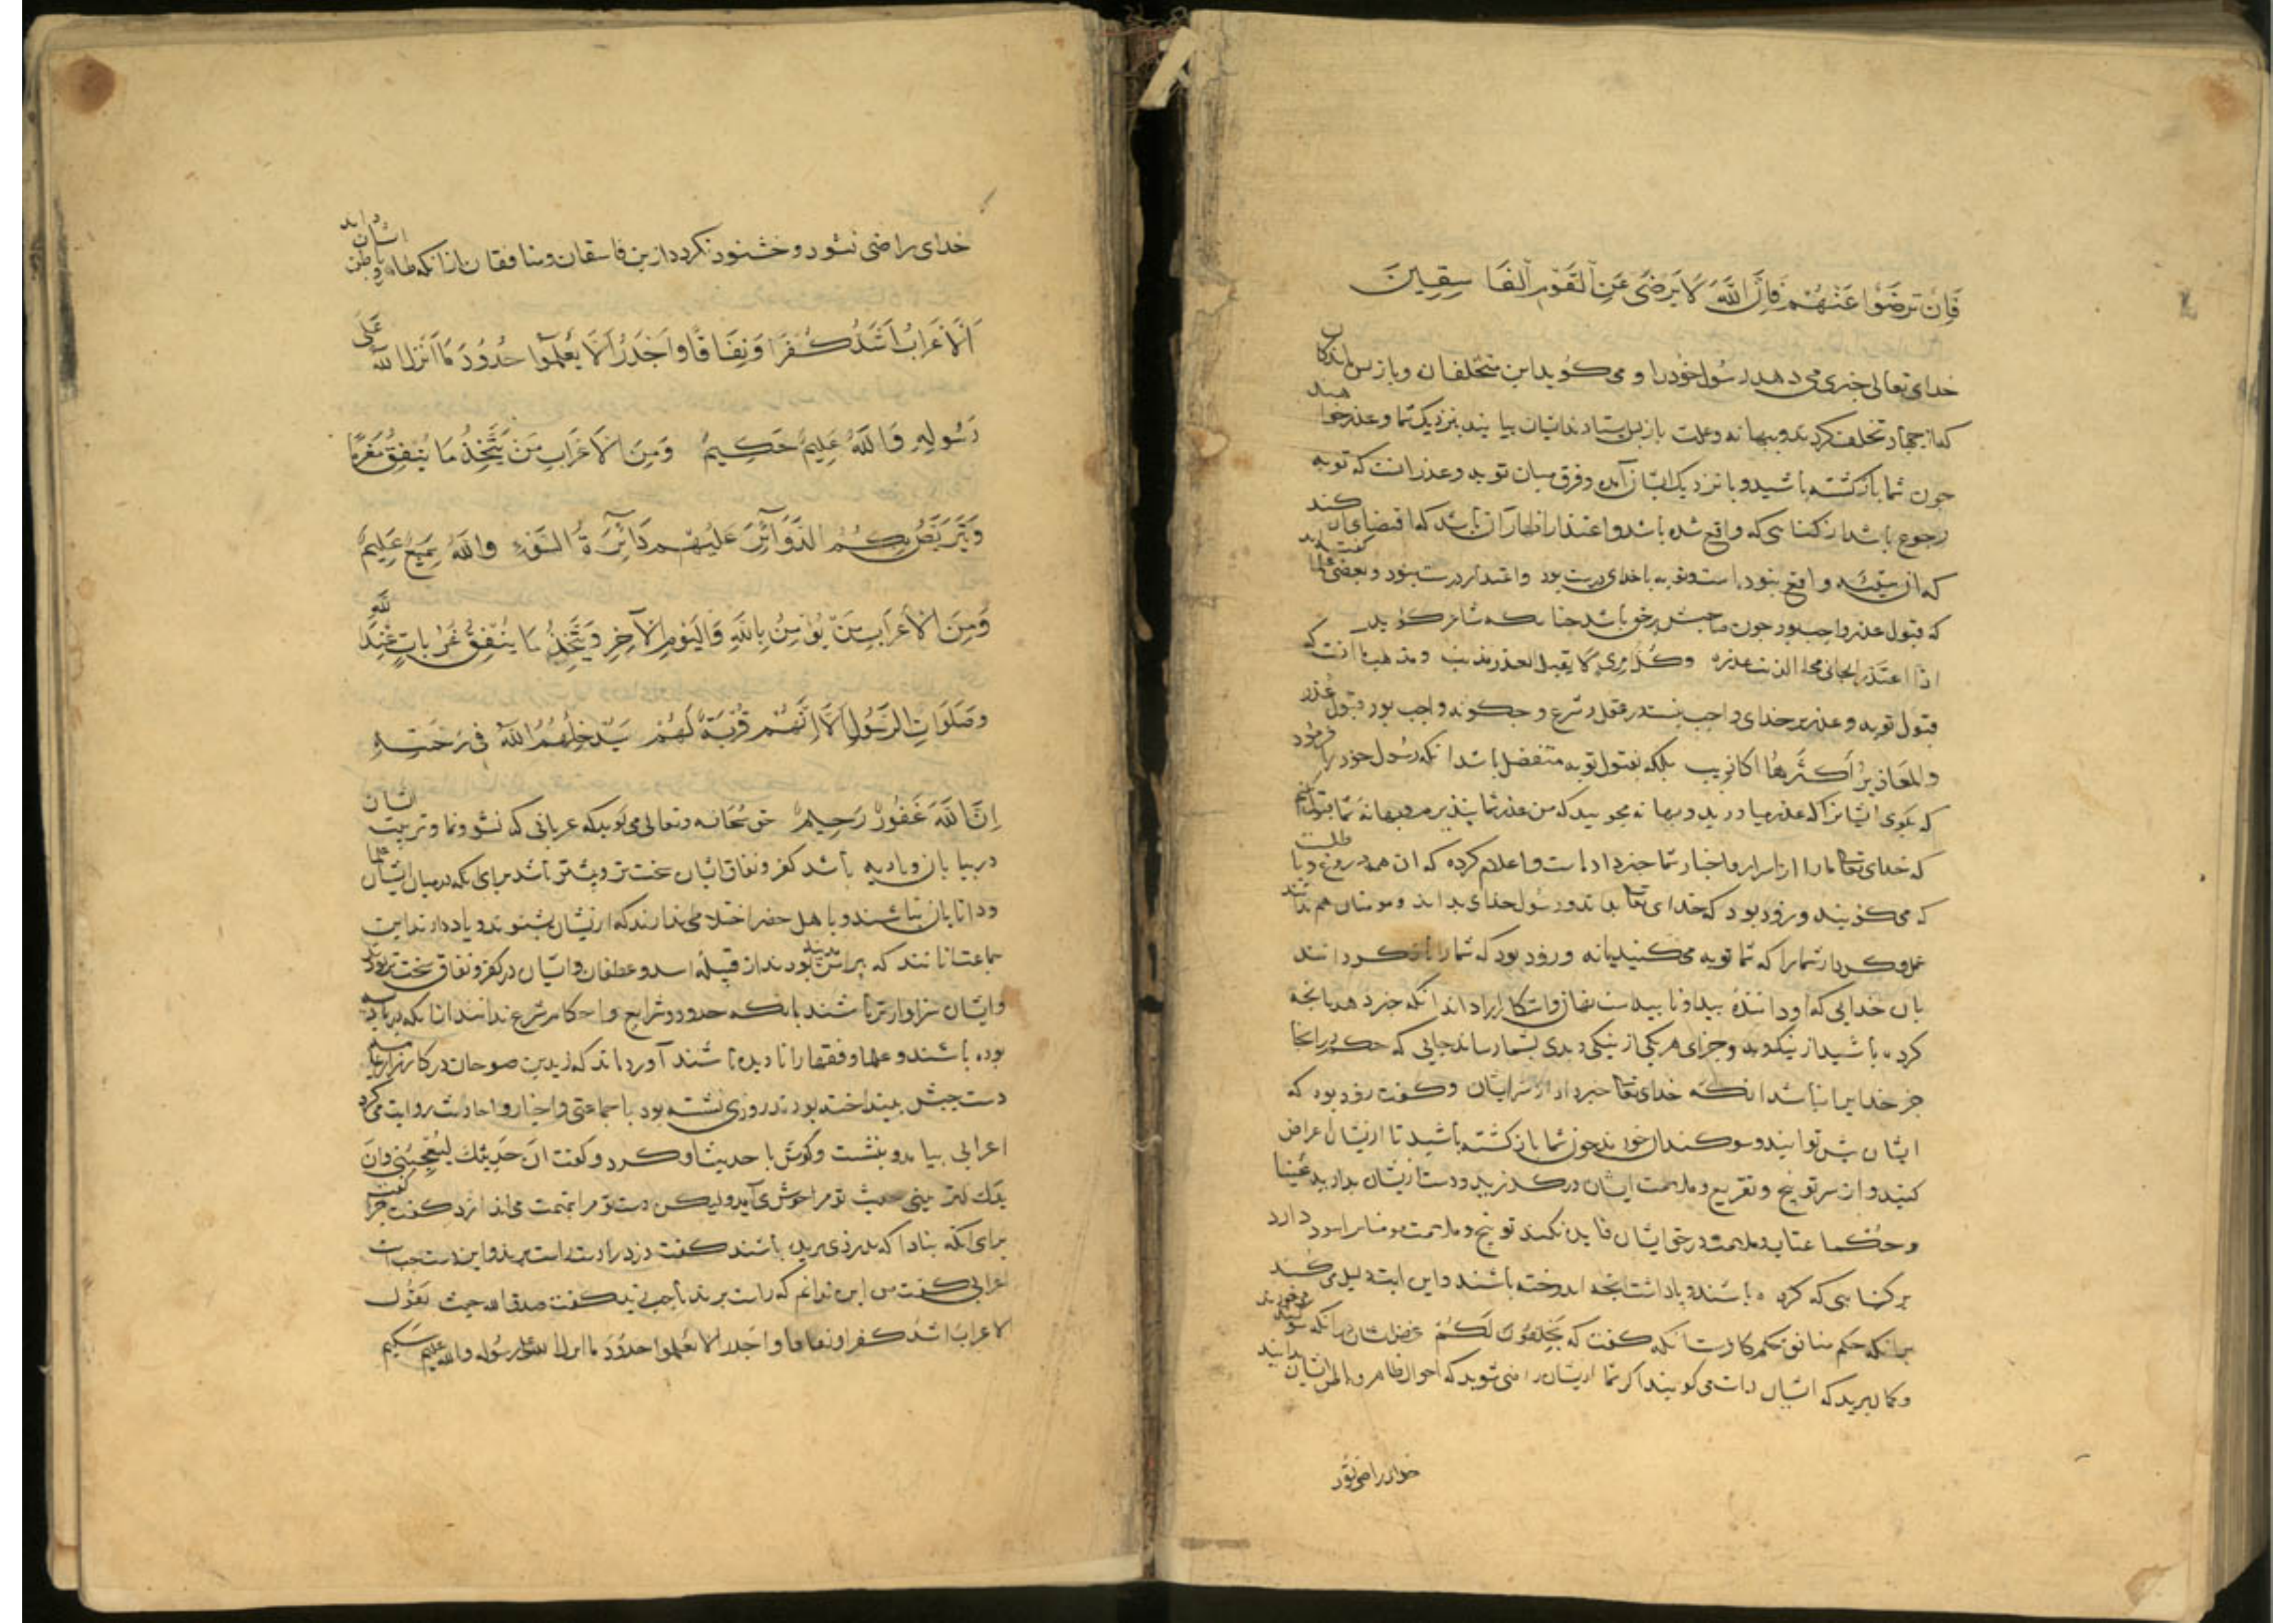 فَإِنْ تَرْضَوْا عَنْهُمْ فَإِنَّ اللَّهَ لَا يَرْضَى عَنِ الْقَوْمِ الْفَاسِقِينَ
خدای تعالی خبر می دهد رسول خود را و می کوید این متخلفان و بازپس ماندکان
که از جهاد تخلف کردند و ببهانه وعلت باز پس استادند ایشان بیایند بنزدیک شما و عذر خواهند
جون شما بازکشته باشید و با نزدیک ایشان آمده وفرق میان توبه وعذر انست که توبه
رجوع باشد از کناهی که واقع شده باشد و اعتذار اظهار آن باشد که اقتضای آن کند
که ان واقع نبوده است و توبه با خدای درست بود واعتذار درست نبود وبعضی علما کفته اند
که قبول عذر واجب بود جون صاحبش برحق باشد جنانکه شاعر کوید
اذا اعتذر الجانی محا الذنب عذره وکل امرئ لا یقبل العذر مذنب ومذهب ما انست که
قبول توبه و عذر بر خدای واجب نیست در عقل و شرع و جکونه واجب بود قبول عذر
والمعاذیر اکثرها اکاذیب بلکه بقبول توبه متفضل باشد انکه رسول خود را فرمود
که بکوی ایشانرا که عذر میاورید و بهانه مجویید که من عذر شما نپذیرم و بهانه شما قبول نکنم
که خدای تعا مارا از اسرار و اخبار شما خبر داده است و اعلام کرده که ان همه دروغ و باطلست
که می کویند و زود بود که خدای تعا بداند و رسول خدای بداند و مومنان هم بدانند
عمل وکردار شما را که شما توبه می کنید یا نه و زود بود که شما را بازکردانند
بان خدایی که او داننده پیدا و ناپیداست نهان و اشکارا داند انکه خبر دهد بانچه
کرده باشید از نیک و بد و جزای هریکی از نیکی و بدی بشما رساند جایی که حکم در انجا
جز خدایرا نباشد انکه خدای تعا خبر داد از سر ایشان وکفت زود بود که
ایشان پیش تو ایند و سوکندان خورند جون شما بازکشته باشید تا از ایشان اعراض
کنید و از سر توبیخ و تقریع و ملامت ایشان درکذرید و دست از ایشان بدارید
و حکما عتاب و ملامت در حق ایشان فایده نکند توبیخ و ملامت مومنانرا سود دارد
بر کناهی که کرده باشند و پاداشت انچه اندوخته باشند و این ایت دلیل می کند
بر انکه حکم منافق حکم کافرست انکه کفت که یحلفون لکم غرض ایشان در انکه سوکند می خورند
وکمان برید که ایشان راست می کویند اکر شما از ایشان راضی شوید که احوال ظاهر و باطن ایشان ندانید
خدای راضی نشود
خدای راضی نشود و خشنود نکردد ازین فاسقان و منافقان ازانکه ظاهر وباطن ایشان داند
اَلْأَعْرَابُ أَشَدُّ كُفْرًا وَنِفَاقًا وَأَجْدَرُ أَلَّا يَعْلَمُوا حُدُودَ مَا أَنْزَلَ اللَّهُ عَلَى
رَسُولِهِ وَاللَّهُ عَلِيمٌ حَكِيمٌ وَمِنَ الْأَعْرَابِ مَنْ يَتَّخِذُ مَا يُنْفِقُ مَغْرَمًا
وَيَتَرَبَّصُ بِكُمُ الدَّوَائِرَ عَلَيْهِمْ دَائِرَةُ السَّوْءِ وَاللَّهُ سَمِيعٌ عَلِيمٌ
وَمِنَ الْأَعْرَابِ مَنْ يُؤْمِنُ بِاللَّهِ وَالْيَوْمِ الْآخِرِ وَيَتَّخِذُ مَا يُنْفِقُ قُرُبَاتٍ عِنْدَ اللَّهِ
وَصَلَوَاتِ الرَّسُولِ أَلَا إِنَّهَا قُرْبَةٌ لَهُمْ سَيُدْخِلُهُمُ اللَّهُ فِي رَحْمَتِهِ
إِنَّ اللَّهَ غَفُورٌ رَحِيمٌ حق سبحانه وتعالی می کوید که عربانی که نشو ونما وتربیت ایشان
در بیابان وبادیه باشد کفر ونفاق ایشان سخت تر وبیشتر باشد برای انکه در میان ایشان علما
ودانایان نباشند و با اهل حضر اختلاط ندارند که از ایشان بشنوند و یاد دارند این
جماعت انانند که پیرامن مدینه بودند از قبیله اسد و غطفان وایشان در کفر و نفاق سخت تر بودند
وایشان سزاوارتر باشند بانکه حدود و شرایع و احکام شرع ندانند از انکه در بادیه
بوده باشند و علما و فقها را نادیده باشند آورده اند که زید بن صوحان در کارزار
دست جبش بینداخته بودند روزی نشسته بود با جماعتی و اخبار و احادیث روایت می کرد
اعرابی بیامد و بنشست وکوش با حدیث او کرد وکفت ان حدیثک لیعجبنی وان
یدک لتریبنی حدیث تو مرا خوش می آید ولیکن دست تو مرا بتهمت می اندازد کفت جرا کفت
برای انکه نبادا که بدزدی بریده باشند کفت دزد را دست راست برند و این دست جب است
اعرابی کفت من این ندانم که راست برند یا جب زید کفت صدق الله حیث یقول
الاعراب اشد کفرا ونفاقا واجدر الا یعلموا حدود ما انزل الله علی رسوله والله علیم حکیم